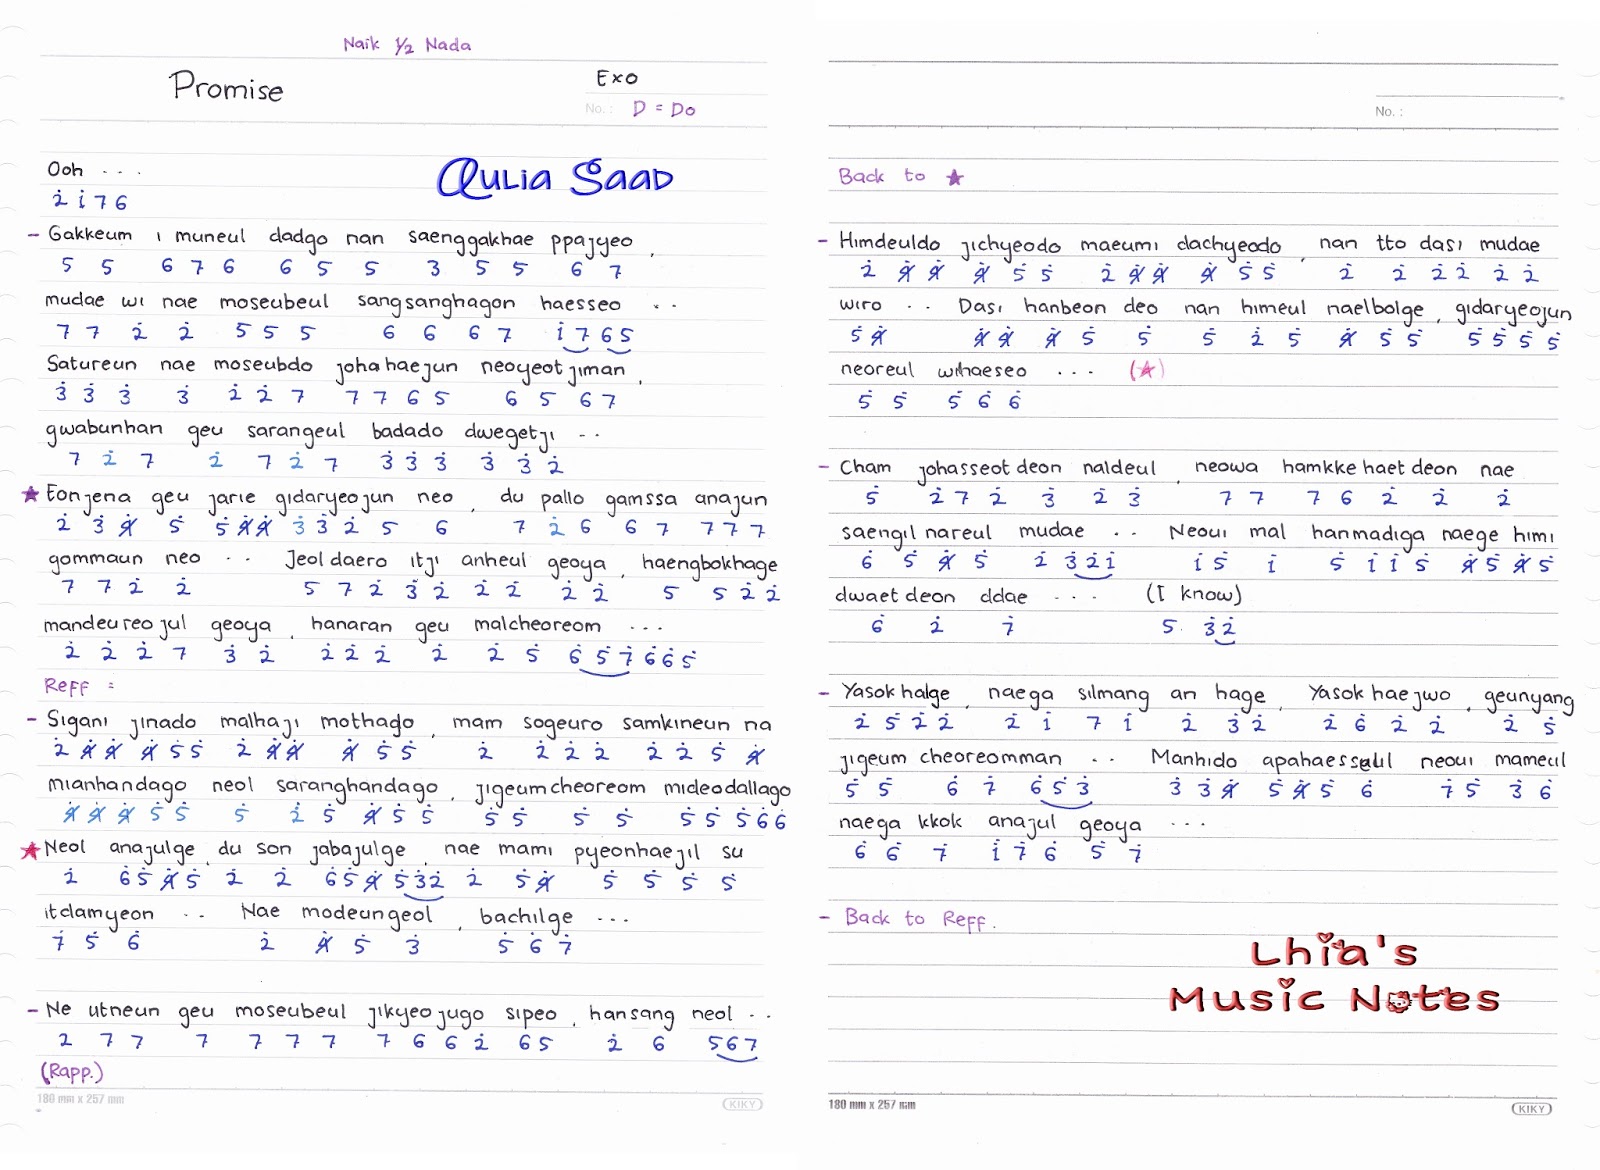 Naik 1/2 Nada
Promise
Exo
No.: D = Do
Qulia Saad
Ooh ....
2 1 7 6
- Gakkeum i muneul dadgo nan saenggakhae ppajyeo,
5 5 6 7 6 6 5 5 3 5 5 6 7
mudae wi nae moseubeul sangsanghagon haesseo ..
7 7 2 2 5 5 5 6 6 6 7 1 7 6 5
Satureun nae moseubdo johahaejun neoyeotjiman,
3 3 3 3 2 2 7 7 7 6 5 6 5 6 7
gwabunhan geu sarangeul badado dwegetji ..
7 2 7 2 7 2 7 3 3 3 3 3 2
★ Eonjena geu jarie gidaryeojun neo, du pallo gamssa anajun
2 3 4 5 5 4 4 3 3 2 5 6 7 2 6 6 7 7 7 7
gommaun neo .. Jeoldaero itji anheul geoya, haengbokhage
7 7 2 2 5 7 2 3 2 2 2 2 2 5 5 2 2
mandeureojul geoya, hanaran geu malcheoreom ...
2 2 2 7 3 2 2 2 2 2 2 5 6 5 7 6 6 5
Reff =
- Sigani jinado malhaji mothado, mam sogeuro samkineun na
2 4 4 4 5 5 2 4 4 4 5 5 2 2 2 2 2 2 5 4
mianhandago neol saranghandago, jigeumcheoreom mideodallago
4 4 4 5 5 5 2 5 4 5 5 5 5 5 5 5 5 5 6 6
★ Neol anajulge, du son jabajulge, nae mami pyeonhaejil su
2 6 5 4 5 2 2 6 5 4 5 3 2 2 5 4 5 5 5 5
itdamyeon .. Nae modeungeol, bachilge ...
7 5 6 2 4 5 3 5 6 7
- Ne utneun geu moseubeul jikyeojugo sipeo, hansang neol ..
2 7 7 7 7 7 7 7 6 6 2 6 5 2 6 5 6 7
(Rapp.)
180 mm x 257 mm
KIKY
No.:
Back to ★
- Himdeuldo jichyeodo maeumi dachyeodo, nan tto dasi mudae
2 4 4 4 5 5 2 4 4 4 5 5 2 2 2 2 2 2
wiro .. Dasi hanbeon deo nan himeul naelbolge, gidaryeojun
5 4 4 4 4 5 5 5 2 5 4 5 5 5 5 5 5
neoreul wihaeseo ... (★)
5 5 5 6 6
- Cham johasseotdeon naldeul, neowa hamkkehaetdeon nae
5 2 7 2 3 2 3 7 7 7 6 2 2 2
saengil nareul mudae .. Neoui mal hanmadiga naege himi
6 5 4 5 2 3 2 1 1 5 1 5 1 1 5 4 5 4 5
dwaetdeon ddae ... (I know)
6 2 7 5. 3 2
- Yasokhalge, naega silmang an hage, Yasokhaejwo, geunyang
2 5 2 2 2 1 7 1 2 3 2 2 6 2 2 2 5
jigeum cheoreomman .. Manhido apahaesseul neoui mameul
5 5 6 7 6 5 3 3 3 4 5 4 5 6 7 5 3 6
naega kkok anajul geoya ...
6 6 7 1 7 6 5 7
- Back to Reff.
Lhia's
Music Notes
180 mm x 257 mm
KIKY